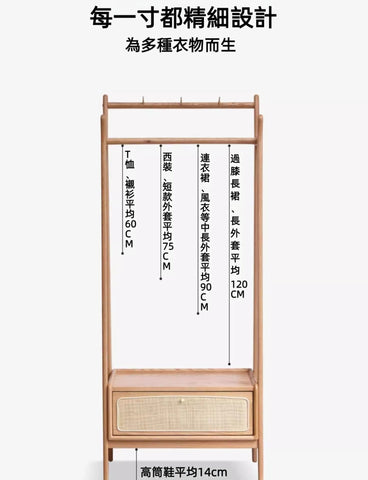 每一寸都精細設計
為多種衣物而生
T恤、襯衫平均60CM
西裝、短款外套平均75CM
連衣裙、風衣等中長外套平均90CM
過膝長裙、長外套平均120CM
高筒鞋平均14cm